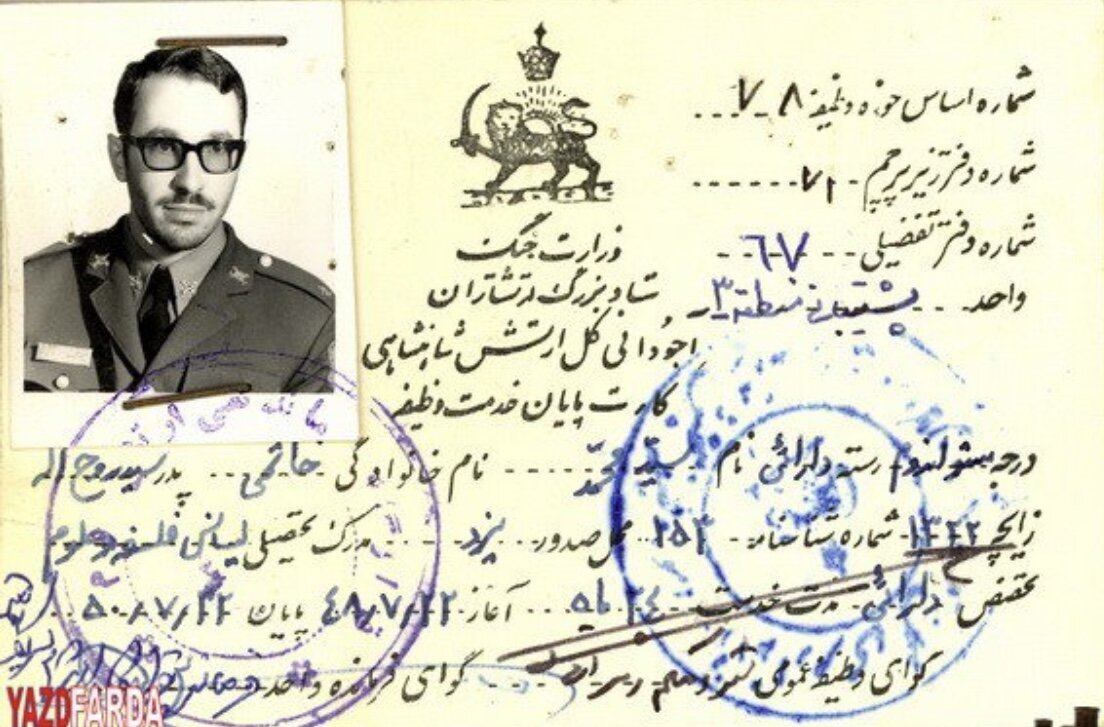 شماره اساس حوزه وظیفه ۷-۸
شماره دفتر زیر پرچم ۷۱
شماره دفتر تفضیلی ۶۷
واحد پشتیبانی منطقه ۳
وزارت جنگ
ستاد بزرگ ارتشتاران
اجودانی کل ارتش شاهنشاهی
کارت پایان خدمت وظیفه
درجه ستواندوم رسته دارائی نام سید محمد نام خانوادگی خاتمی پدر سید روح اله
زایچ ۱۳۲۲ شماره شناسنامه ۲۵۳ محل صدور یزد مدرک تحصیلی لیسانس فلسفه و علوم
تخصص دارائی مدت خدمت ۲۴ ماه آغاز ۴۸/۷/۲۲ پایان ۵۰/۷/۲۲
گواهی وظیفه عمومی گواهی فرمانده واحد
YAZDFARDA